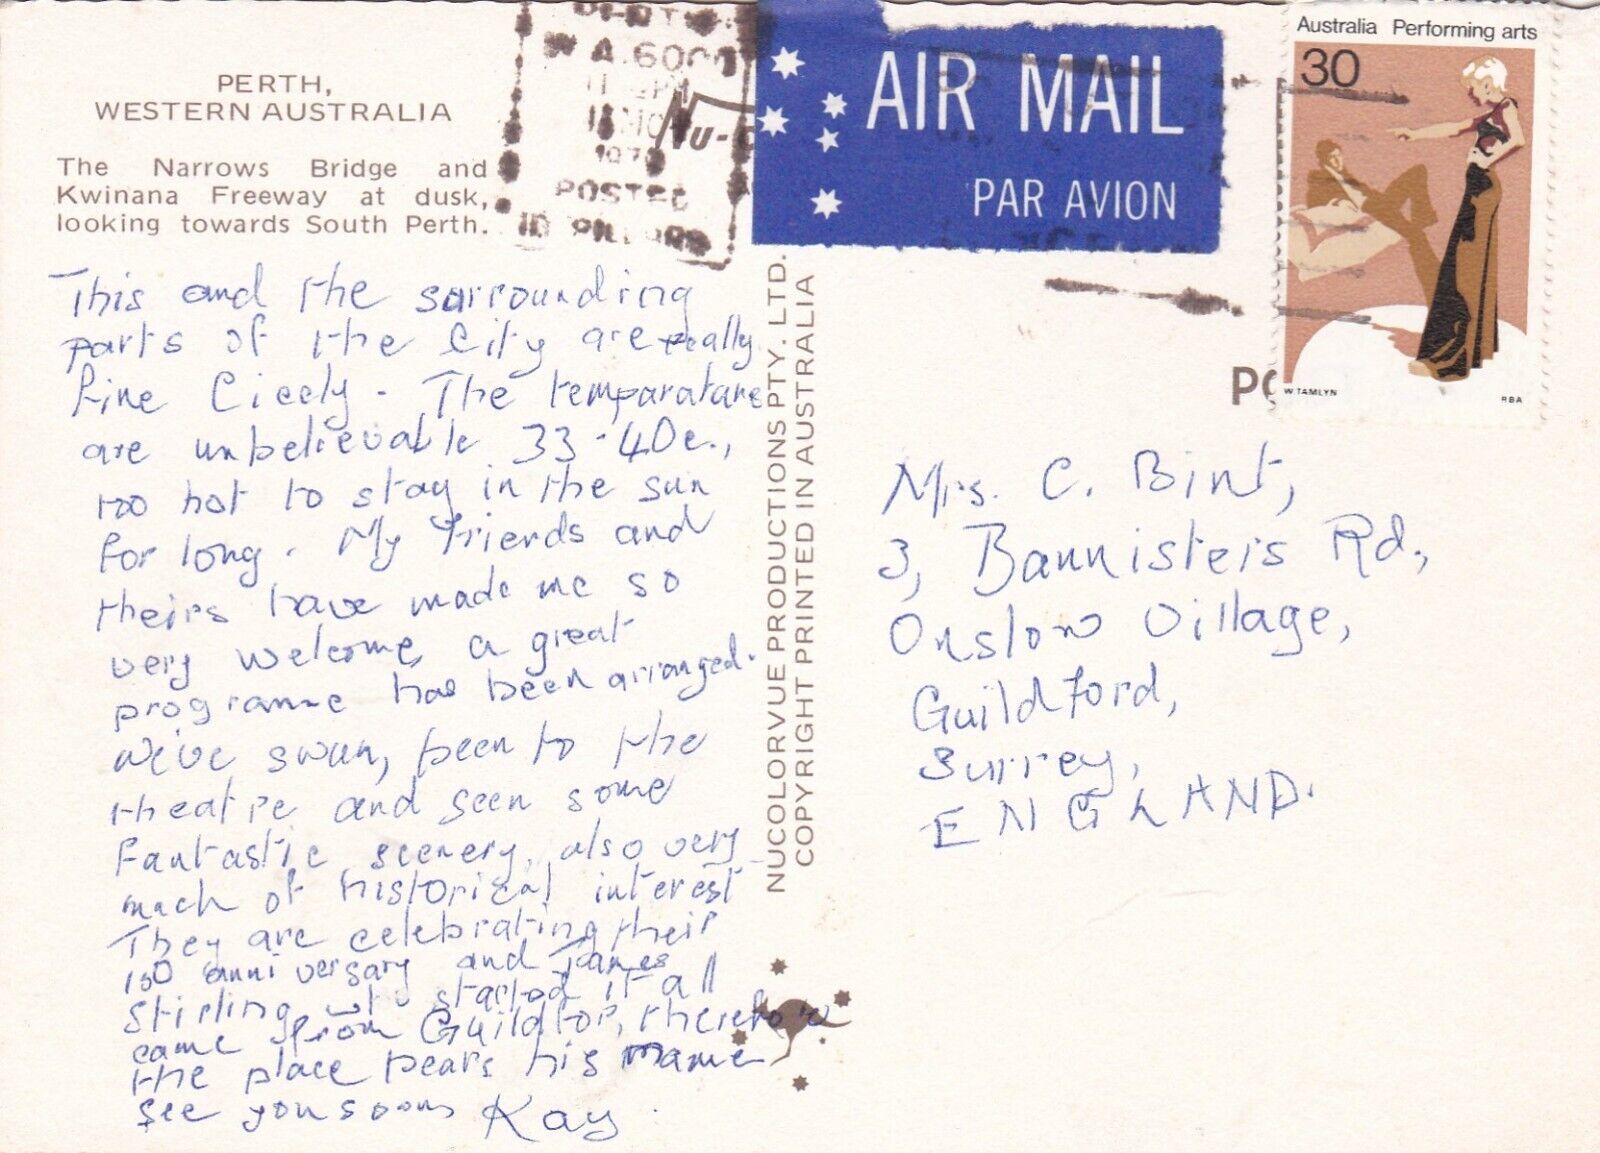 PERTH,
WESTERN AUSTRALIA
The Narrows Bridge and
Kwinana Freeway at dusk,
looking towards South Perth.
W.A. 6000
197
POSTED
NU-
AIR MAIL
PAR AVION
Australia Performing arts
30
W. TAMLYN
RBA
PO
This and the surrounding
parts of the City are really
fine Cicely. The temparature
are unbelievable 33-40c.,
too hot to stay in the sun
for long. My friends and
theirs have made me so
very welcome, a great
programme has been arranged.
We've swum, been to the
theatre and seen some
fantastic scenery, also very
much of historical interest
They are celebrating their
150 anniversary and James
Stirling who started it all
came from Guildfor, therefore
the place bears his name
see you soon Kay.
NUCOLORVUE PRODUCTIONS PTY. LTD.
COPYRIGHT PRINTED IN AUSTRALIA
Mrs. C. Bint,
3, Bannisters Rd.,
Onslow Village,
Guildford,
Surrey,
ENGLAND.